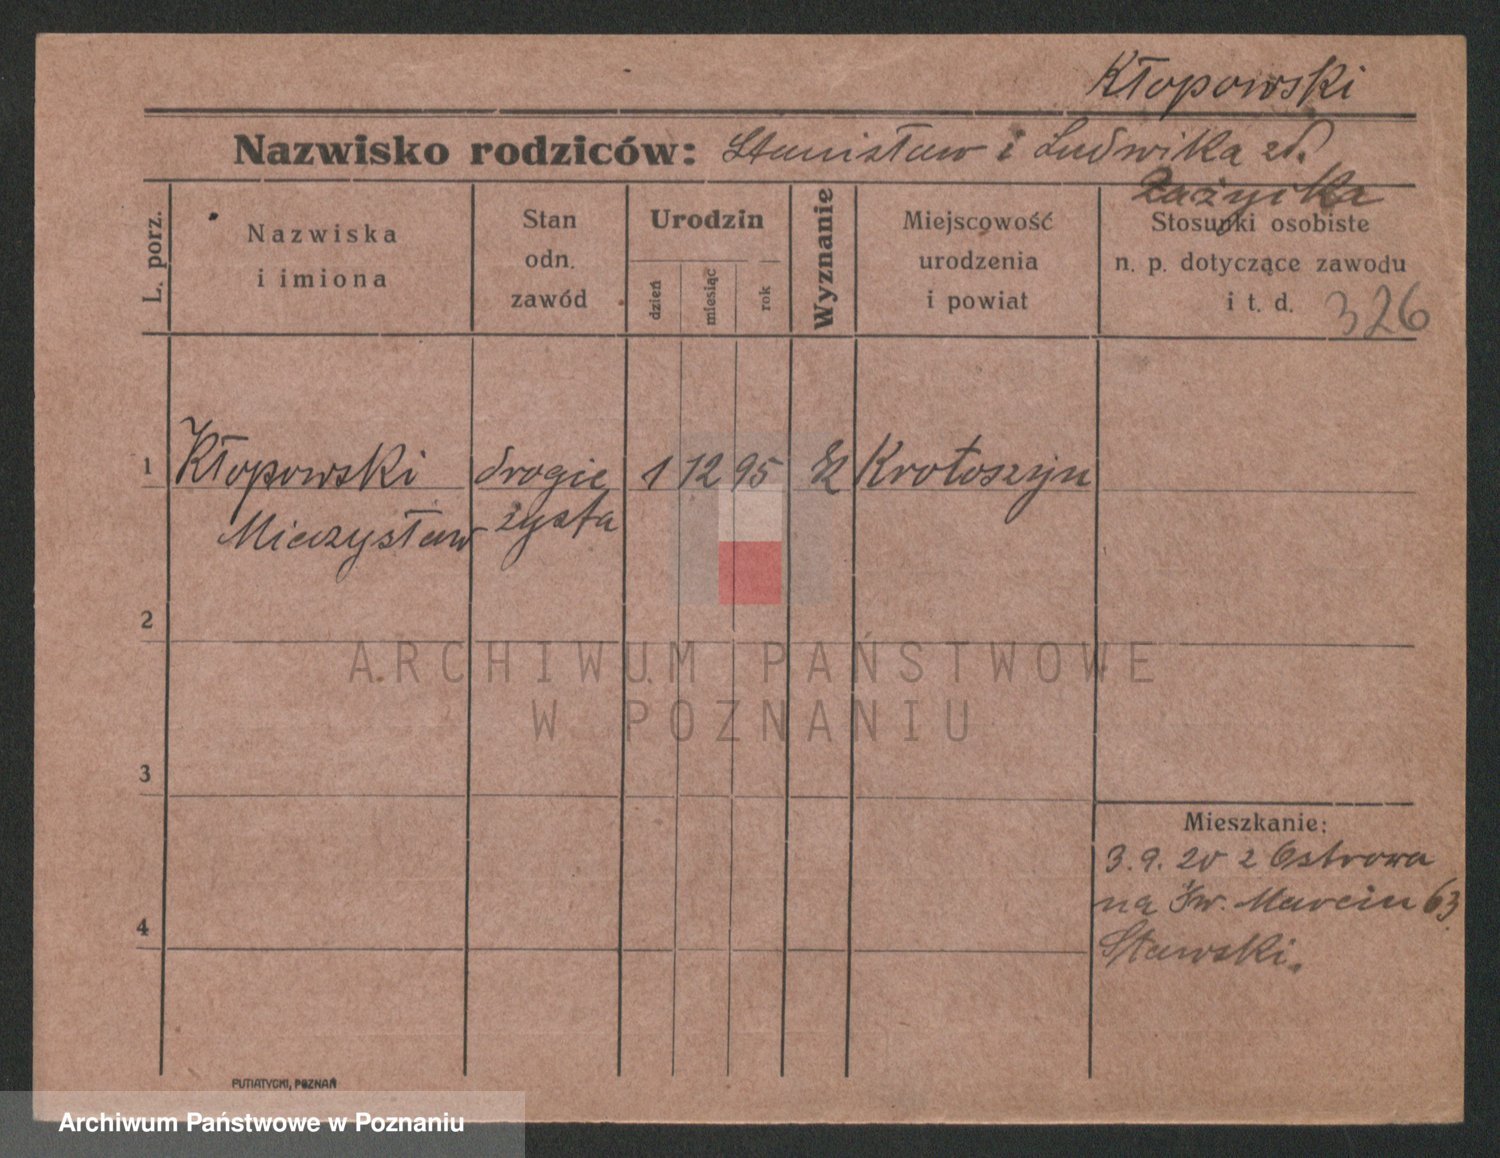 Kłopowski
Nazwisko rodziców: Stanisław i Ludwika zd.
L. porz.
Nazwiska
i imiona
Stan
odn.
zawód
Urodzin
dzień
miesiąc
rok
Wyznanie
Miejscowość
urodzenia
i powiat
Stosunki osobiste
n. p. dotyczące zawodu
i t. d. 326
1 Kłopowski drogie 1 12 95 Krotoszyn
Mieczysław zysta
2
ARCHIWUM PAŃSTWOWE
W POZNANIU
3
Mieszkanie:
3.9.20 z Ostrowa
na Św. Marcin 63
Stawski.
4
PUTIATYCKI, POZNAŃ
Archiwum Państwowe w Poznaniu